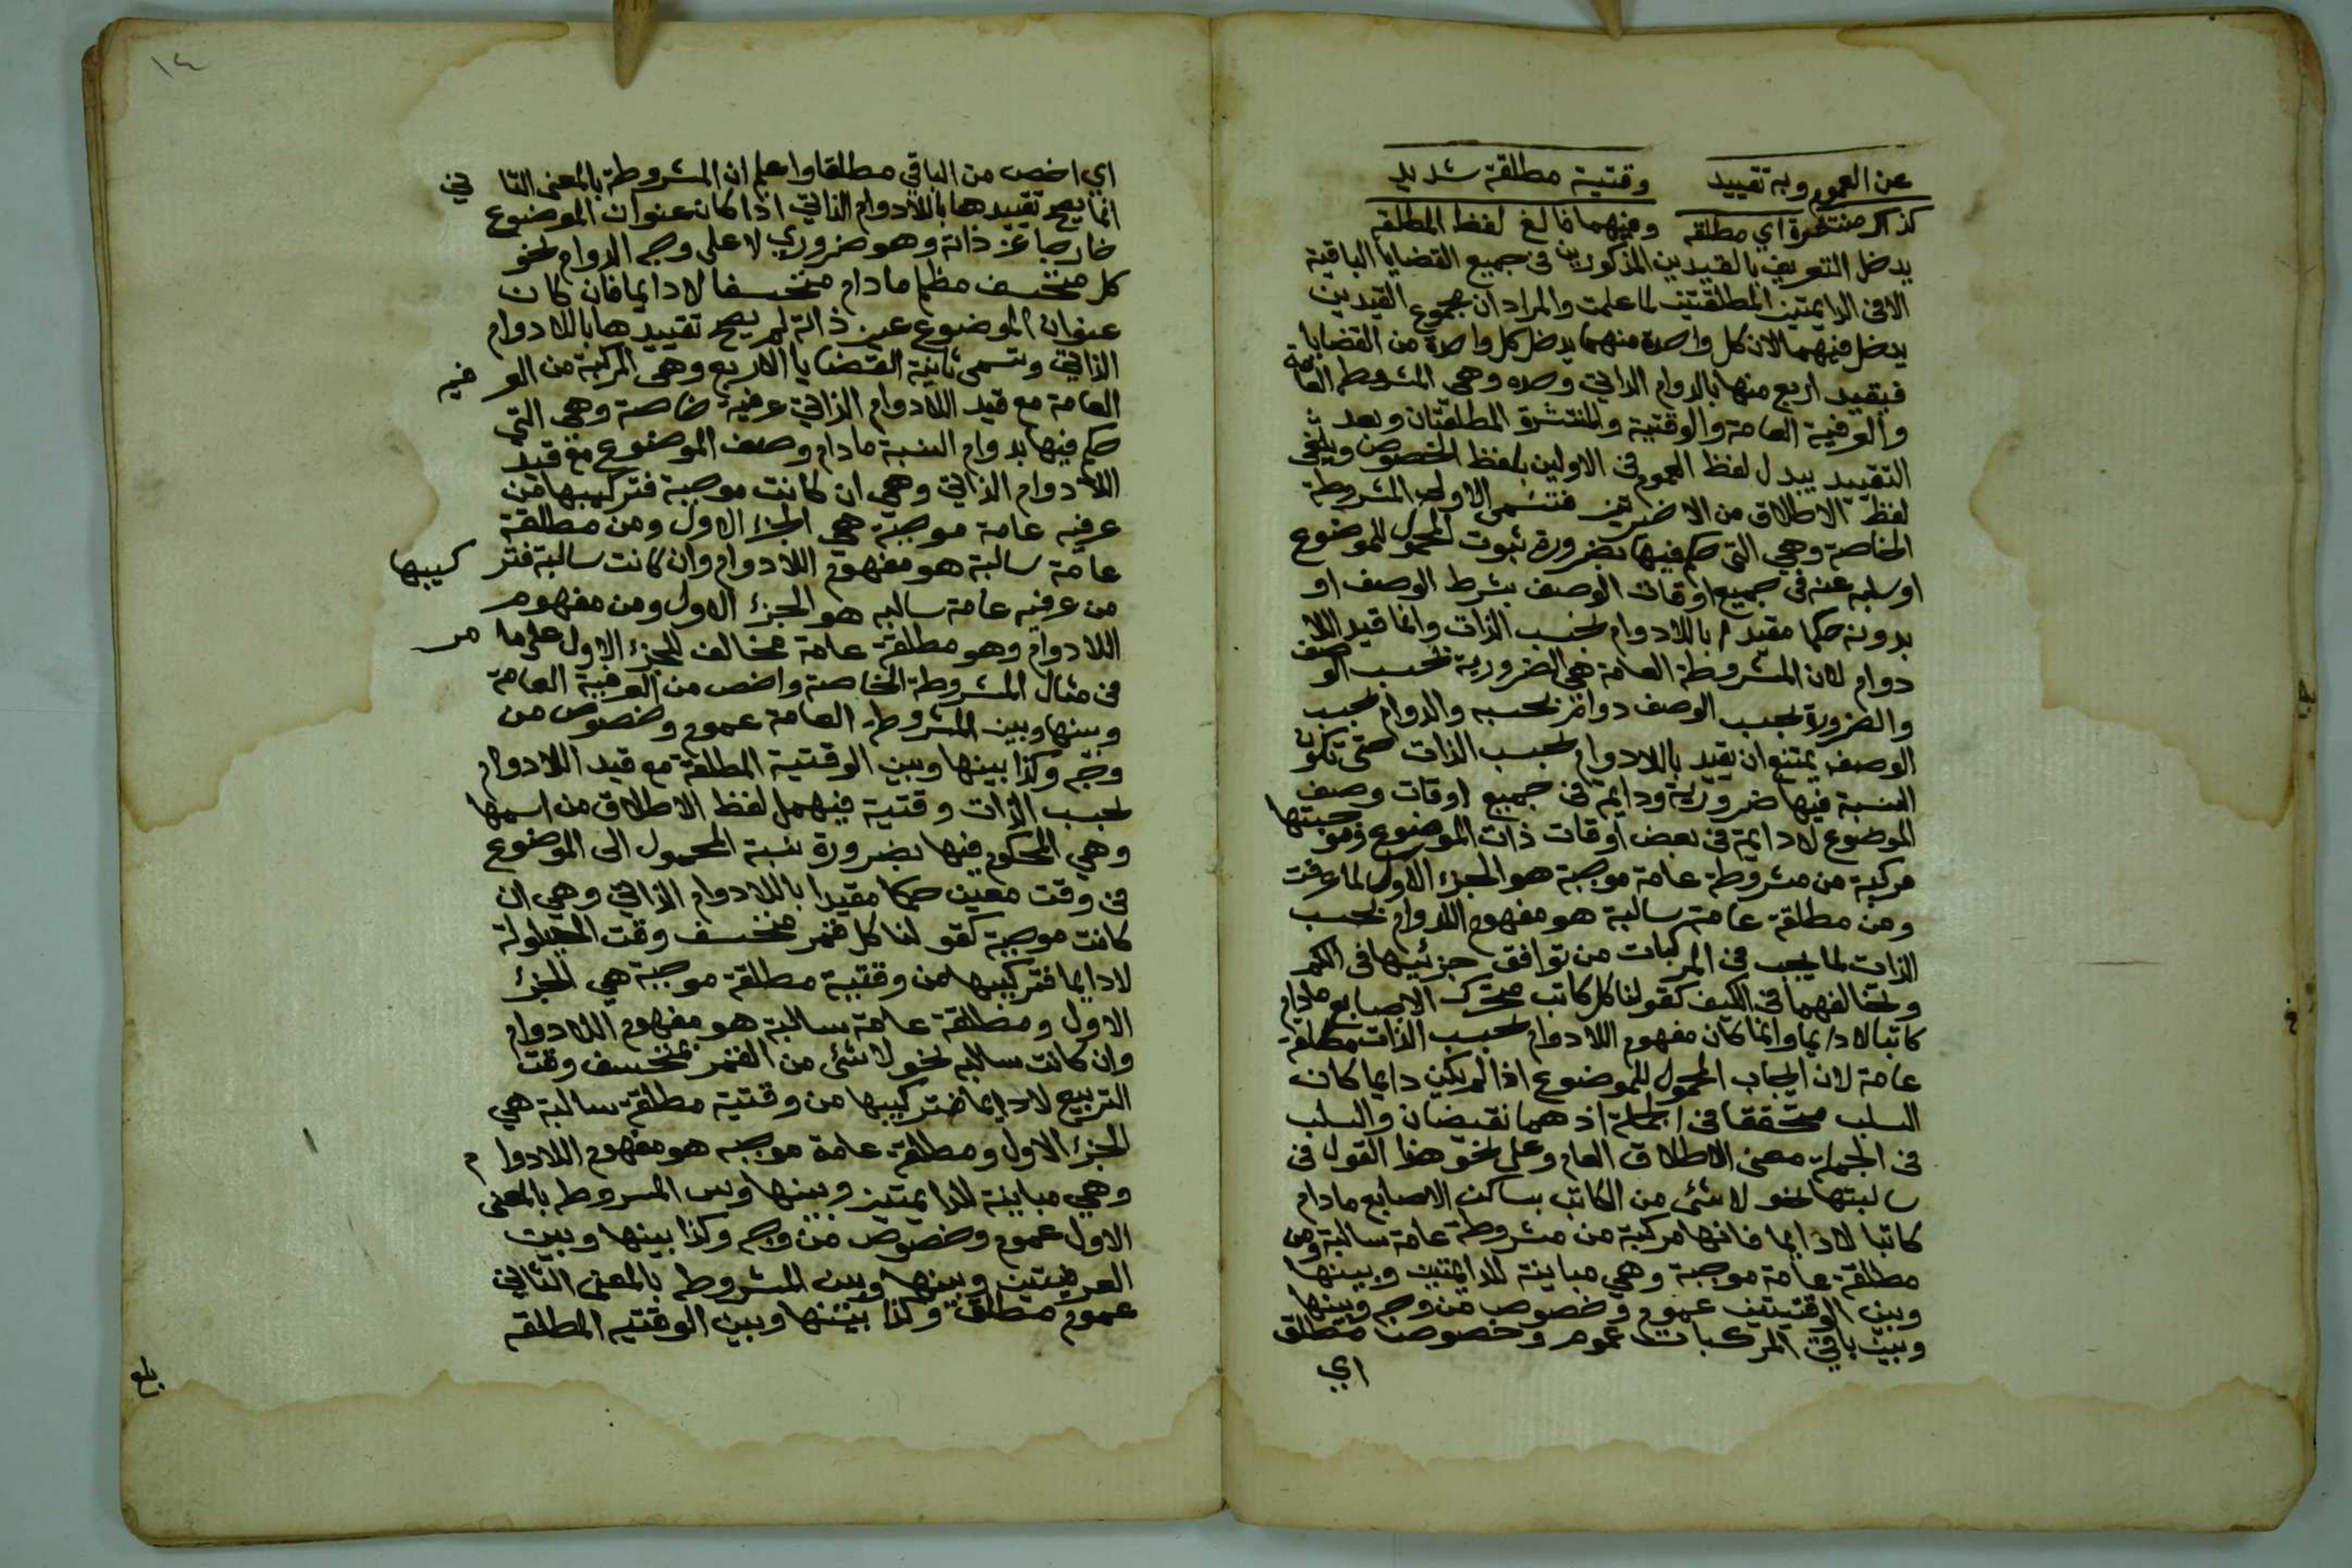 عن العموم وبه تقييد وقتية مطلقة شديد
كذاك منتشرة اي مطلقه وفيهما فالغ لفظ المطلقه
يدخل التعريف بالقيدين المذكورين في جميع القضايا الباقية
الا في الدايمتين المطلقتين لما علمت والمراد ان مجموع القيدين
يدخل فيهما لان كل واحدة منهما يدخل كل واحدة من القضايا
فيقيد اربع منها بالدوام الذاتي وحده وهي المشروطة العامة
والعرفية العامة والوقتية والمنتشرة المطلقتان وبعد
التقييد يبدل لفظ العموم في الاولين بلفظ الخصوص ويلغى
لفظ الاطلاق من الاخيرتين فتسمى الاولى المشروطة
الخاصة وهي التي حكم فيها بضرورة ثبوت المحمول للموضوع
او سلبه عنه في جميع اوقات الوصف بشرط الوصف او
بدونه حكما مقيدا باللادوام بحسب الذات وانما قيد اللا
دوام لان المشروطة العامة هي الضرورية بحسب الوصف
والضرورة بحسب الوصف دوام بحسبه والدوام بحسب
الوصف يمتنع ان يقيد باللادوام بحسب الذات حتى تكون
النسبة فيها ضرورية ودايمة في جميع اوقات وصف
الموضوع لا دايمة في بعض اوقات ذات الموضوع فموجبتها
مركبة من مشروطة عامة موجبة هو الجزء الاول لما عرفت
ومن مطلقة عامة سالبة هو مفهوم اللادوام بحسب
الذات لما يجب في المركبات من توافق جزئيها في الكم
وتخالفهما في الكيف كقولنا كل كاتب متحرك الاصابع مادام
كاتبا لا دايما وانما كان مفهوم اللادوام بحسب الذات مطلقة
عامة لان ايجاب المحمول للموضوع اذا لم يكن دايما كان
السلب متحققا في الجملة اذ هما نقيضان والسلب
في الجملة معنى الاطلاق العام وعلى نحو هذا القول في
سالبتها نحو لا شئ من الكاتب بساكن الاصابع مادام
كاتبا لا دايما فانها مركبة من مشروطة عامة سالبة ومن
مطلقة عامة موجبة وهي مباينة للدايمتين وبينها
وبين الوقتيتين عموم وخصوص من وجه وبينها
وبين باقي المركبات عموم وخصوص مطلق
اي
١٤
اي اخص من الباقي مطلقا واعلم ان المشروطة بالمعنى الثاني
انما يصح تقييدها باللادوام الذاتي اذا كان عنوان الموضوع
خارجا عن ذاته وهو ضروري لا على وجه الدوام نحو
كل منخسف مظلم مادام منخسفا لا دايما فان كان
عنوان الموضوع عين ذاته لم يصح تقييدها باللادوام
الذاتي وتسمى ثانية القضايا الاربع وهي المركبة من العرفيه
العامة مع قيد اللادوام الذاتي عرفية خاصة وهي التي
حكم فيها بدوام النسبة مادام وصف الموضوع مع قيد
اللادوام الذاتي وهي ان كانت موجبة فتركيبها من
عرفيه عامة موجبة هي الجزء الاول ومن مطلقة
عامة سالبة هو مفهوم اللادوام وان كانت سالبة فتركيبها
من عرفيه عامة سالبه هو الجزء الاول ومن مفهوم
اللادوام وهو مطلقة عامة مخالف للجزء الاول على ما مر
في مثال المشروطة الخاصة واخص من العرفية العامة
وبينها وبين المشروطة العامة عموم وخصوص من
وجه وكذا بينها وبين الوقتية المطلقة مع قيد اللادوام
بحسب الذات وقتية فيهمل لفظ الاطلاق من اسمها
وهي المحكوم فيها بضرورة نسبة المحمول الى الموضوع
في وقت معين حكما مقيدا باللادوام الذاتي وهي ان
كانت موجبة كقولنا كل قمر منخسف وقت الحيلولة
لا دايما فتركيبها من وقتية مطلقة موجبة هي الجزء
الاول ومطلقة عامة سالبة هو مفهوم اللادوام
وان كانت سالبه نحو لا شئ من القمر بمنخسف وقت
التربيع لا دايما فتركيبها من وقتية مطلقة سالبة هي
الجزء الاول ومطلقة عامة موجبه هو مفهوم اللادوام
وهي مباينة للدايمتين وبينها وبين المشروطه بالمعنى
الاول عموم وخصوص من وجه وكذا بينها وبين
العرفيتين وبينها وبين المشروطه بالمعنى الثاني
عموم مطلق وكذا بينها وبين الوقتيه المطلقه
بلغ